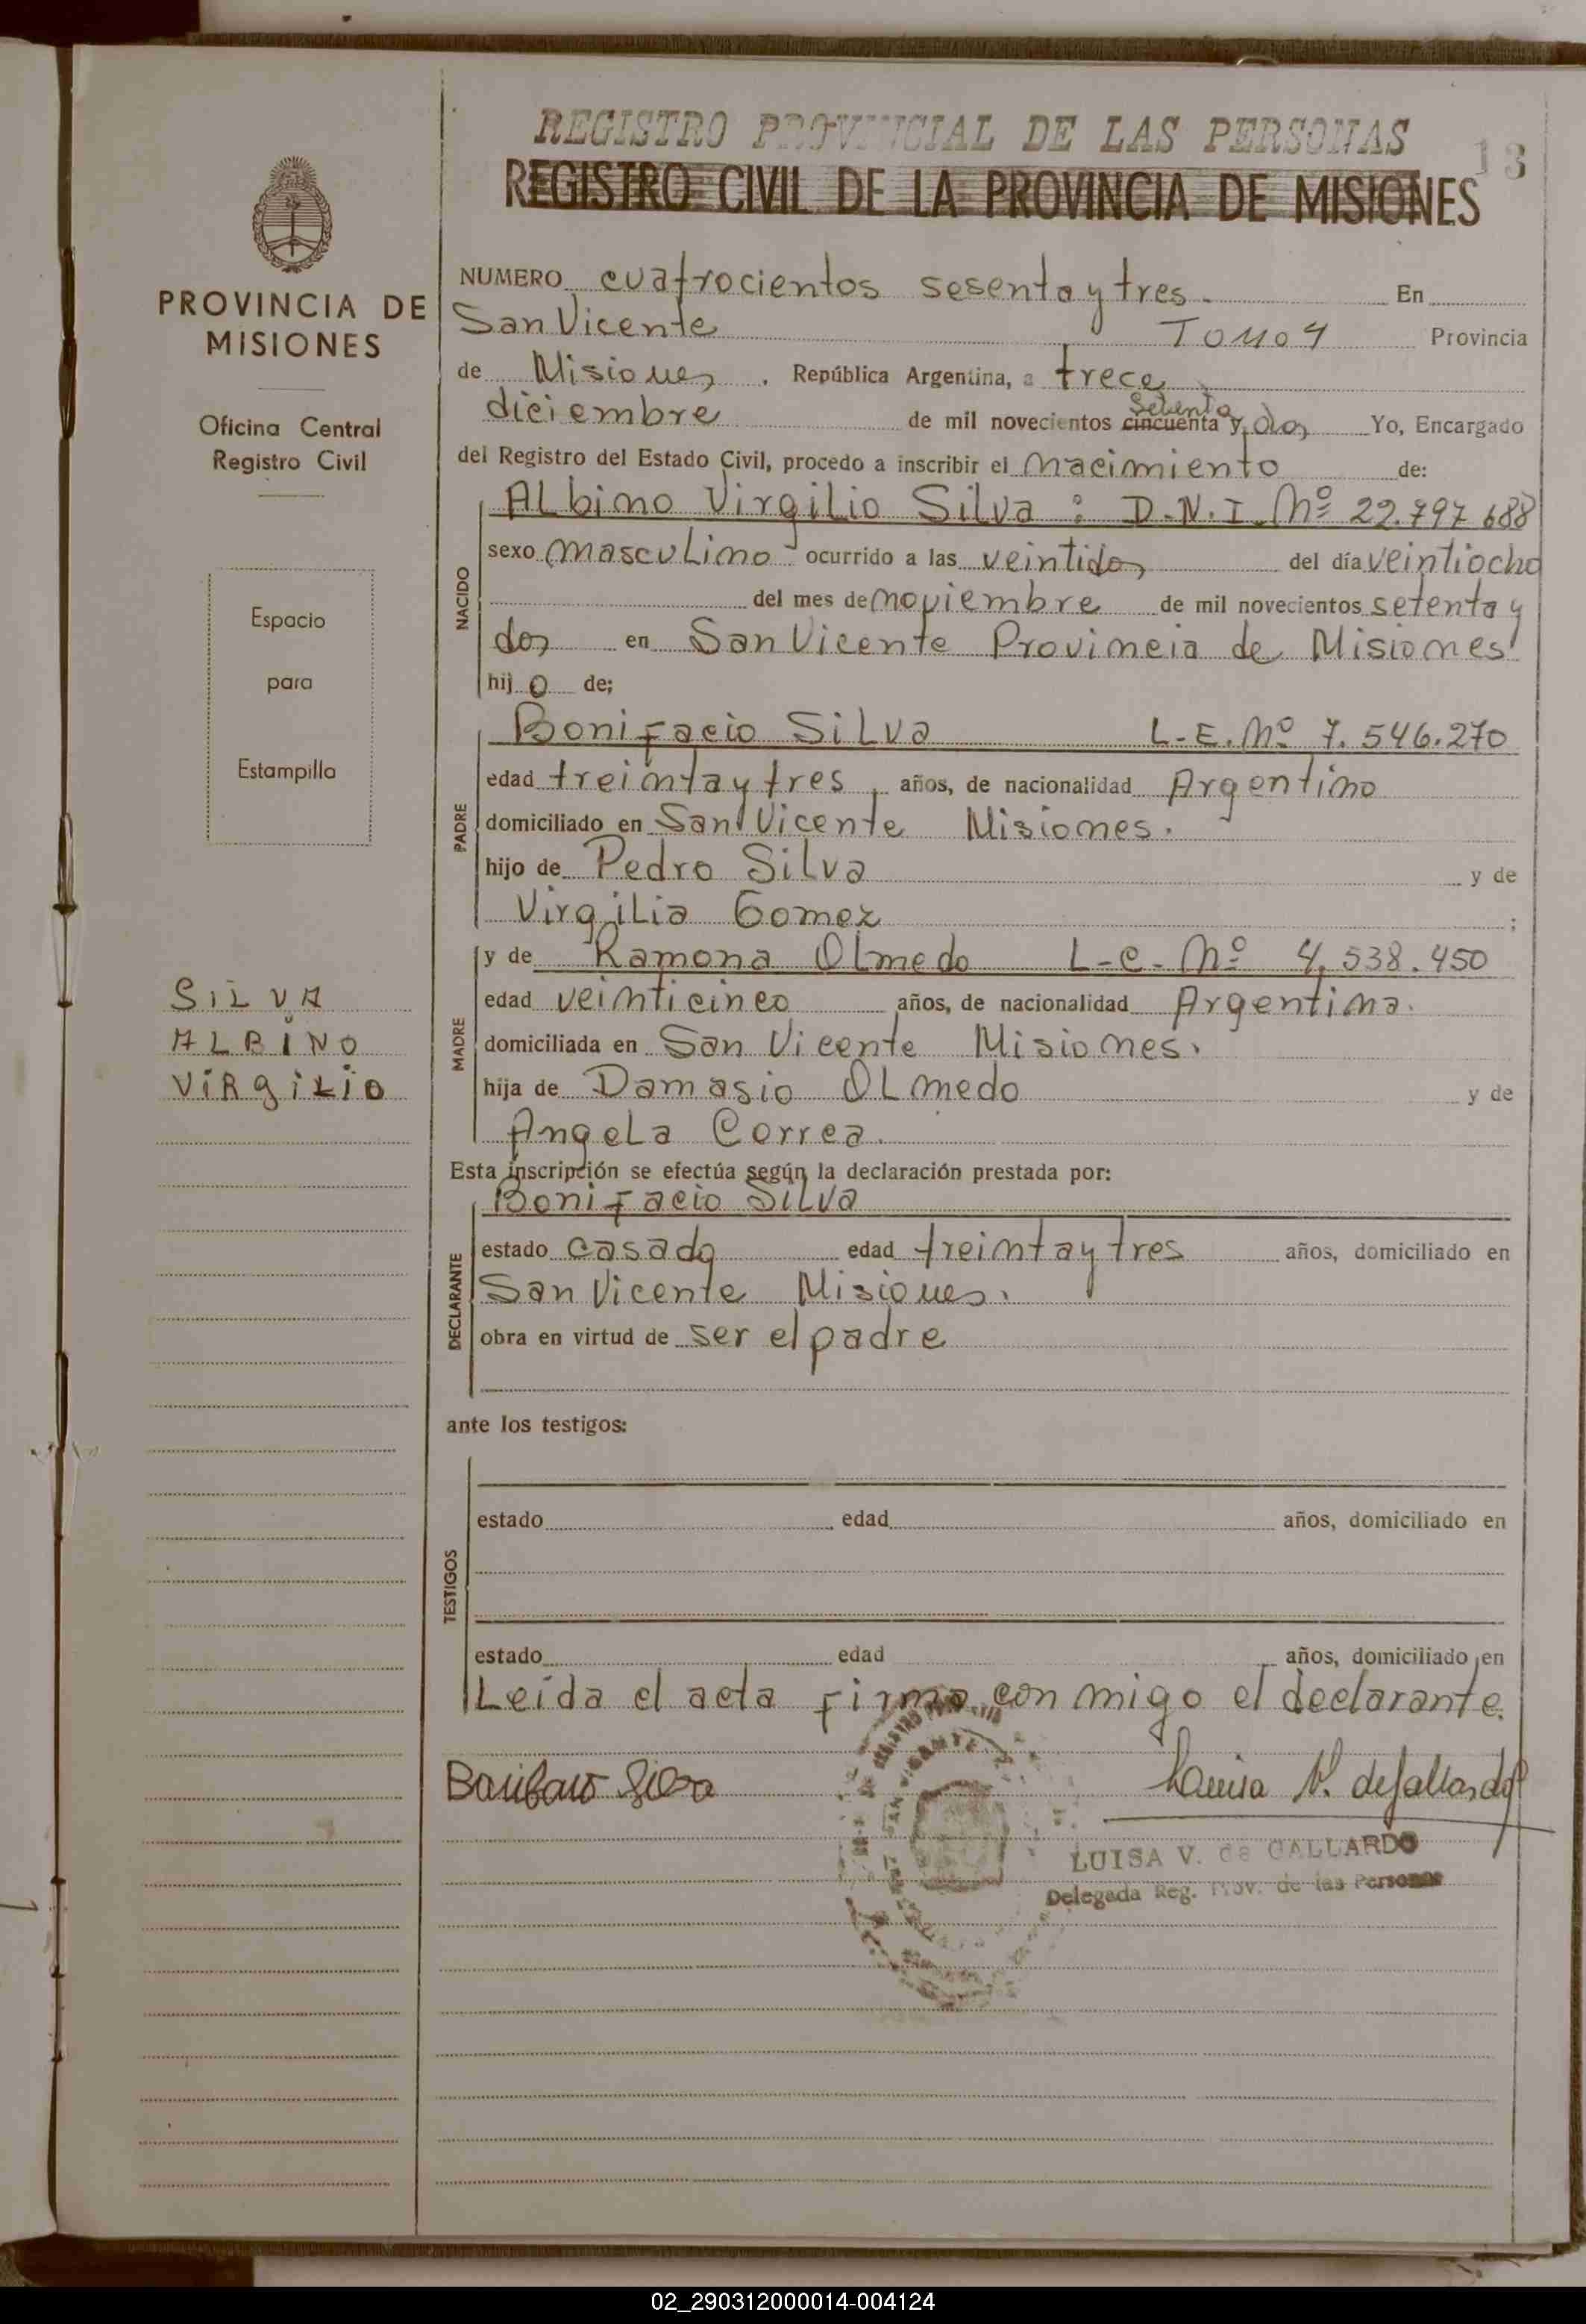 REGISTRO PROVINCIAL DE LAS PERSONAS
13
REGISTRO CIVIL DE LA PROVINCIA DE MISIONES
PROVINCIA DE
MISIONES
Oficina Central
Registro Civil
Espacio
para
Estampilla
SILVA
ALBINO
VIRgiLio
NUMERO cuatrocientos sesenta y tres. En
San Vicente TOMO 4 Provincia
de Misiones. República Argentina, a trece
diciembre de mil novecientos cincuenta setenta y dos Yo, Encargado
del Registro del Estado Civil, procedo a inscribir el nacimiento de:
NACIDO
Albino Virgilio Silva : D.N.I. Nº 22.797.688
sexo masculino ocurrido a las veintidos del día veintiocho
del mes de noviembre de mil novecientos setenta y
dos en San Vicente Provincia de Misiones
hijo de;
PADRE
Bonifacio Silva L.E. Nº 7.546.270
edad treinta y tres años, de nacionalidad Argentino
domiciliado en San Vicente Misiones.
hijo de Pedro Silva y de
Virgilia Gomez ;
MADRE
y de Ramona Olmedo L-C- Nº 4.538.450
edad veinticinco años, de nacionalidad Argentina.
domiciliada en San Vicente Misiones.
hija de Damasio Olmedo y de
Angela Correa.
Esta inscripción se efectúa según la declaración prestada por:
DECLARANTE
Bonifacio Silva
estado casado edad treinta y tres años, domiciliado en
San Vicente Misiones.
obra en virtud de ser el padre
ante los testigos:
TESTIGOS
estado edad años, domiciliado en
estado edad años, domiciliado en
Leída el acta firma con migo el declarante.
Bonifacio Silva
Luisa V. de Gallardo
LUISA V. de GALLARDO
Delegada Reg. Prov. de las Personas
02_290312000014-004124